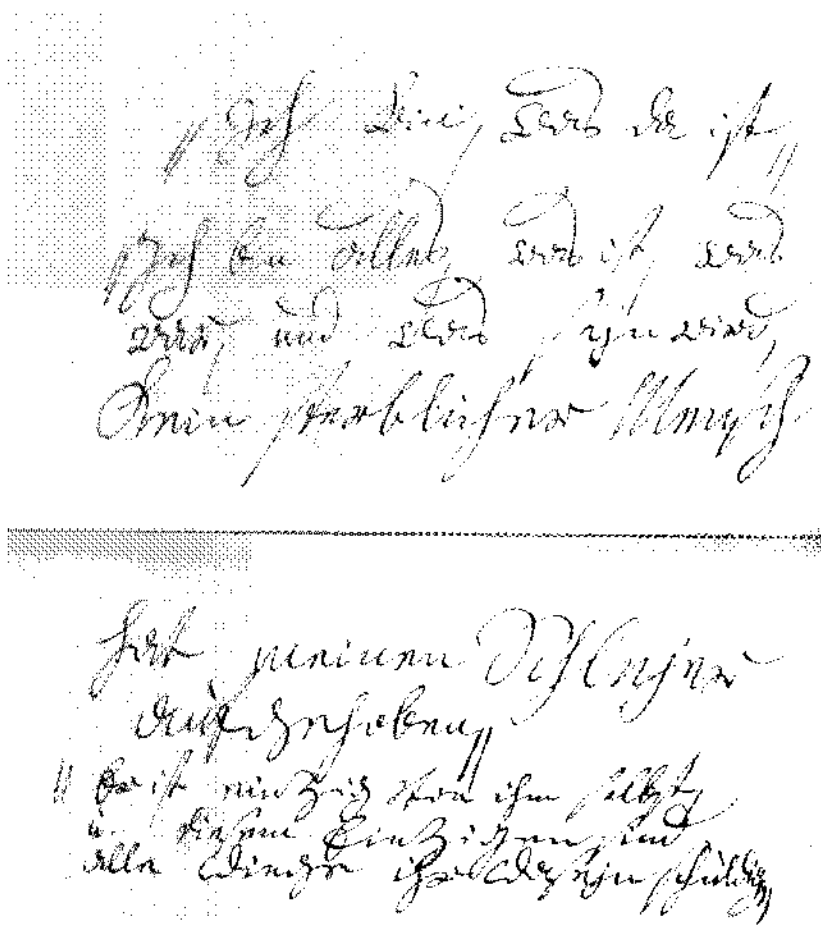 "Ich bin, was da ist"
"Ich bin alles, was ist, was
war, und was seyn wird,
kein sterblicher Mensch
hat meinen Schleyer
aufgehoben"
"Er ist einzig von ihm selbst,
u. diesem Einzigen sind
alle Dinge ihr Daseyn schuldig"